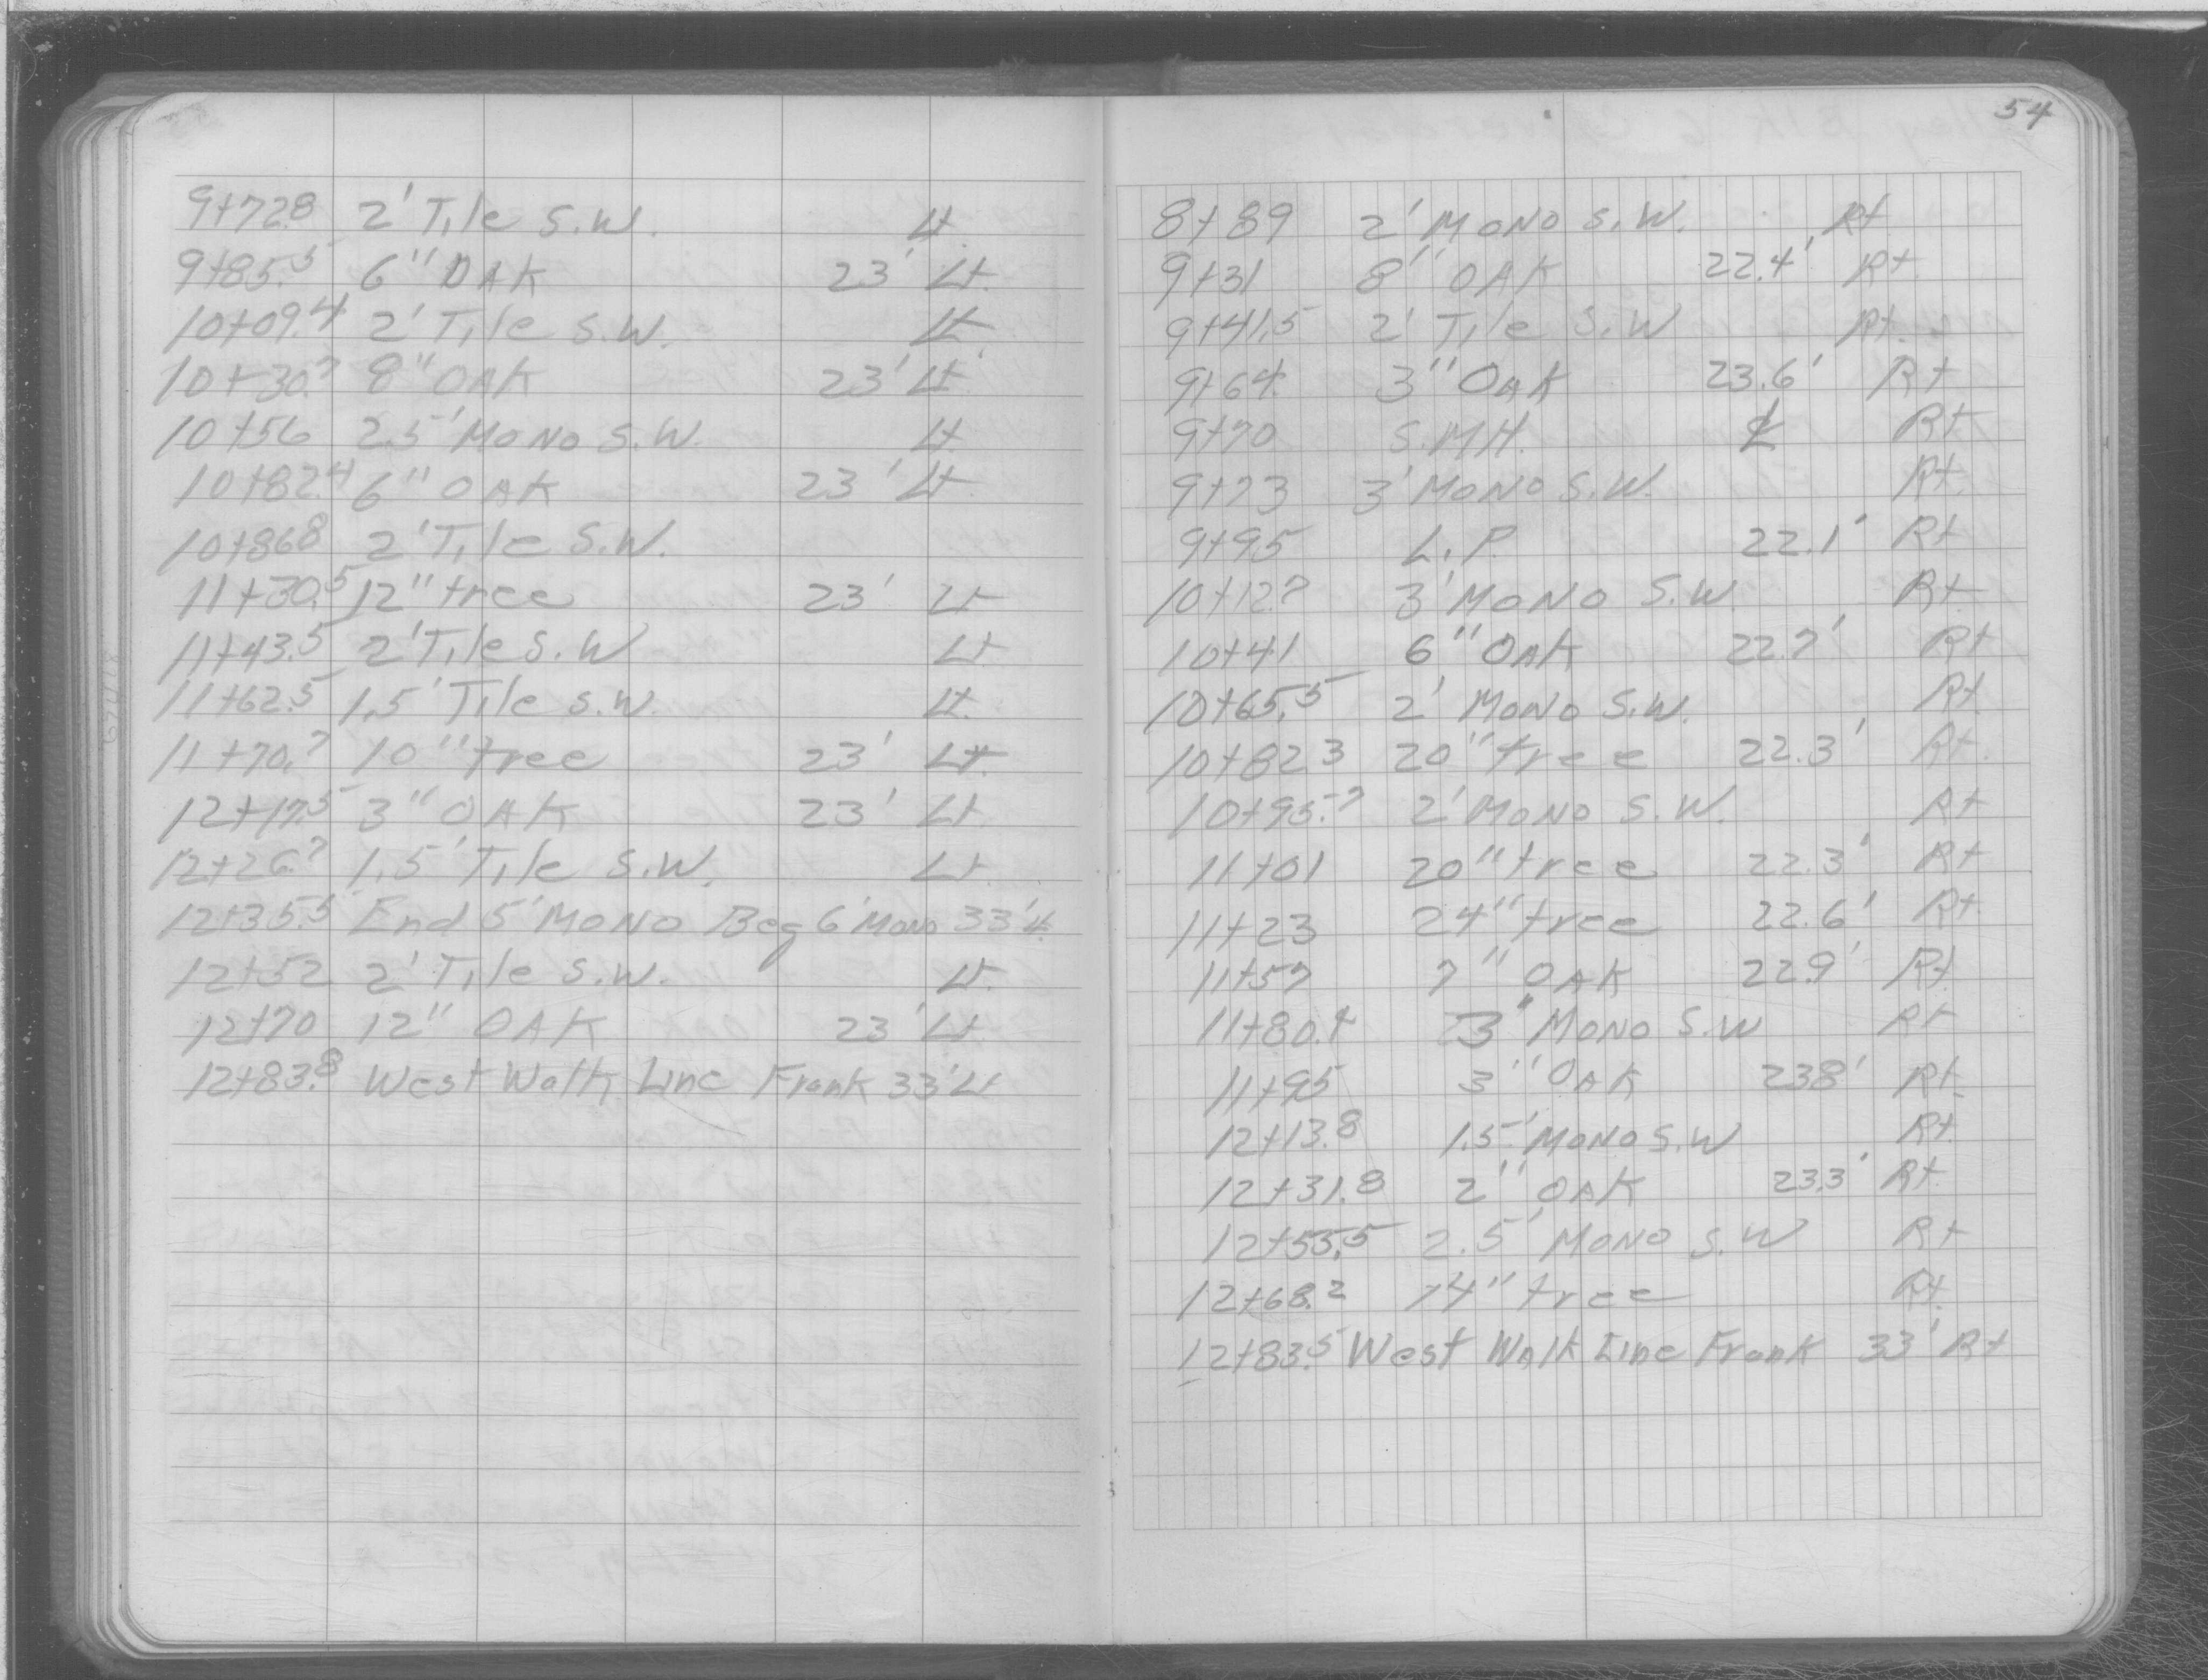 9+72.8 2' Tile S.W. Lt.
9+85.5 6" OAK 23' Lt.
10+09.4 2' Tile S.W. Lt
10+30.7 8" OAK 23' Lt.
10+56 2.5' MONO S.W. Lt.
10+82.4 6" OAK 23' Lt.
10+86.8 2' Tile S.W.
11+30.5 12" tree 23' Lt
11+43.5 2' Tile S.W Lt.
11+62.5 1.5' Tile S.W. Lt.
11+70.7 10" tree 23' Lt.
12+17.5 3" OAK 23' Lt.
12+26.7 1.5' Tile S.W. Lt.
12+35.5 End 5' MONO Beg 6' Mono 33' Lt.
12+52 2' Tile S.W. Lt.
12+70 12" OAK 23' Lt.
12+83.8 West Walk Line Frank 33' Lt
54
8+89 2' MONO S.W. Rt
9+31 8" OAK 22.4' Rt
9+41.5 2' Tile S.W Rt.
9+64. 3" OAK 23.6' Rt
9+70 S.MH. ℄ Rt
9+73 3' MONO S.W. Rt.
9+95 L.P. 22.1' Rt
10+12.7 3' MONO S.W. Rt.
10+41 6" OAK 22.7' Rt
10+65.5 2' MONO S.W. Rt.
10+82.3 20" tree 22.3' Rt.
10+95.7 2' MONO S.W. Rt
11+01 20" tree 22.3' Rt
11+23 24" tree 22.6' Rt.
11+57 7" OAK 22.9' Rt.
11+80.4 3' MONO S.W Rt
11+95 3" OAK 23.8' Rt.
12+13.8 1.5' MONO S.W Rt.
12+31.8 2" OAK 23.3' Rt.
12+55.5 2.5' MONO S.W Rt
12+68.2 14" tree Rt.
12+83.5 West Walk Line Frank 33' Rt